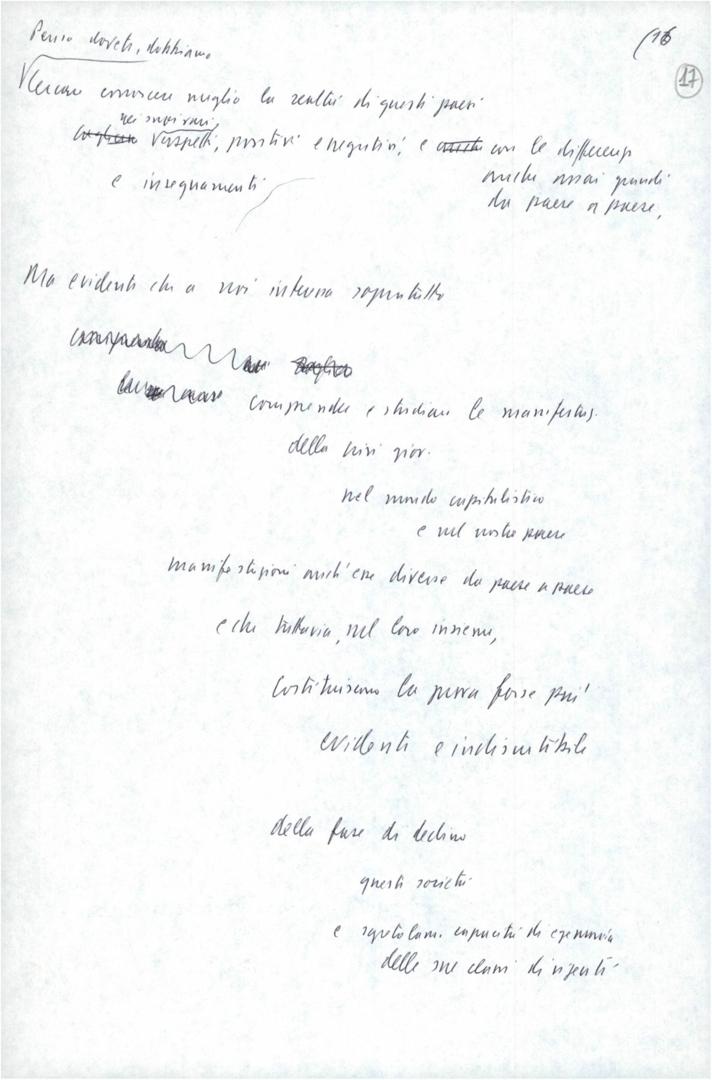 (16
17
Penso dovete, dobbiamo
Cercare conoscere meglio la realtà di questi paesi
nei suoi vari
cogliere aspetti, positivi e negativi, e anche con le differenze
anche assai grandi
e insegnamenti
da paese a paese,
Ma evidente che a noi interessa soprattutto
comprendere
comprendere e studiare le manifestaz.
della crisi giov.
nel mondo capitalistico
e nel nostro paese
manifestazioni anch'esse diverse da paese a paese
e che tuttavia, nel loro insieme,
costituiscono la prova forse più
evidente e indiscutibile
della fase di declino
questi società
e sgretolam. capacità di egemonia
delle sue classi dirigenti